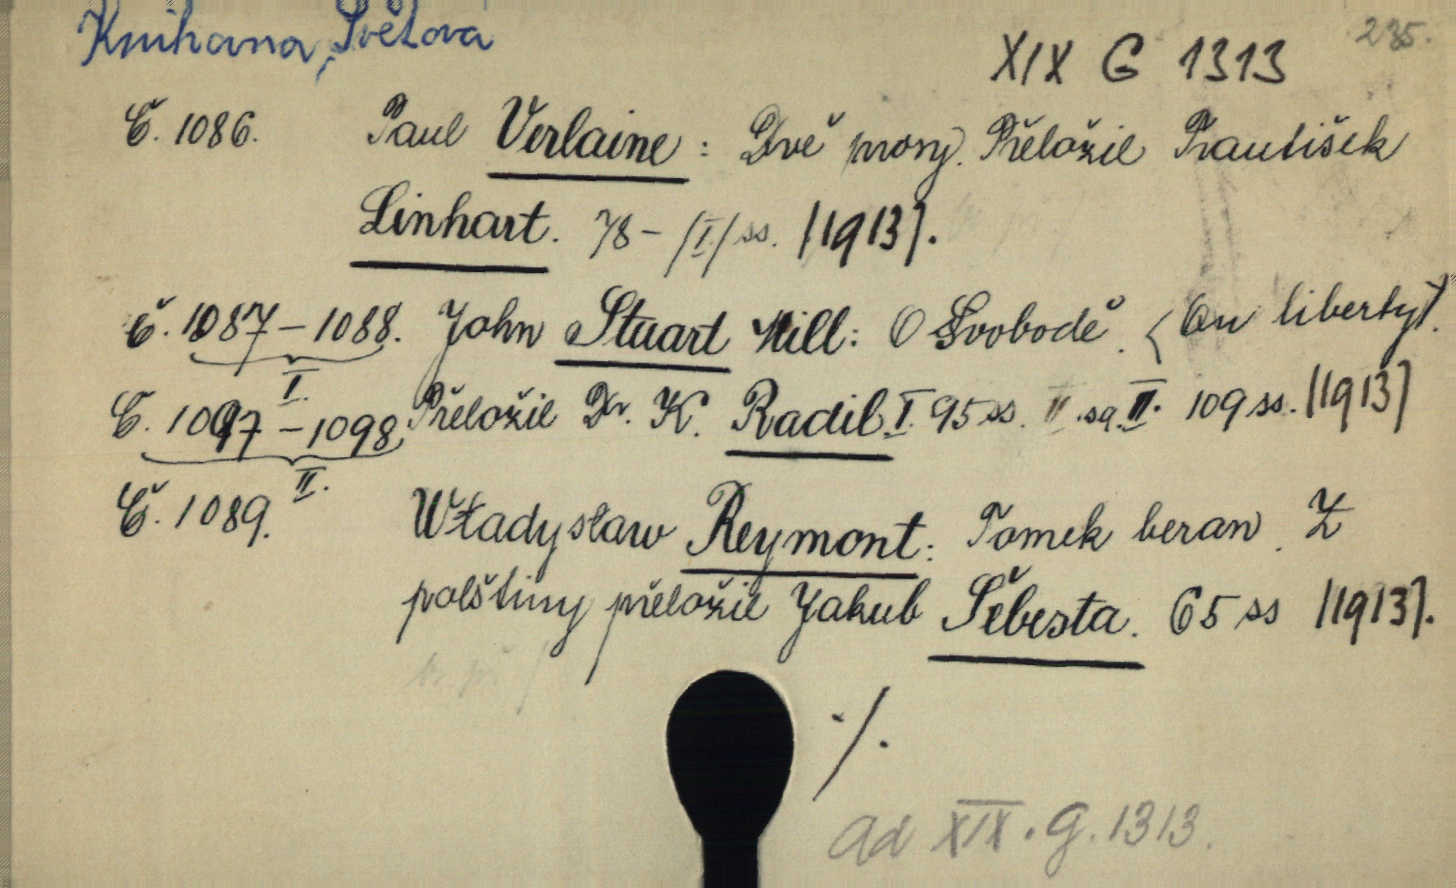 Knihovna, Světová
XIX G 1313
235.
Č. 1086. Paul Verlaine: Dvě prosy. Přeložil František
Linhart. 78 – /I/ ss. /1913/.
Č. 1087 – 1088. John Stuart Mill: O Svobodě. (On liberty).
I.
Č. 1097 – 1098. Přeložil Dr. K. Radil I. 95 ss. II. sq. II. 109 ss. /1913/
II.
Č. 1089. Władysław Reymont: Tomek beran. Z
polštiny přeložil Jakub Šebesta. 65 ss /1913/.
·/.
ad XIX. G. 1313.